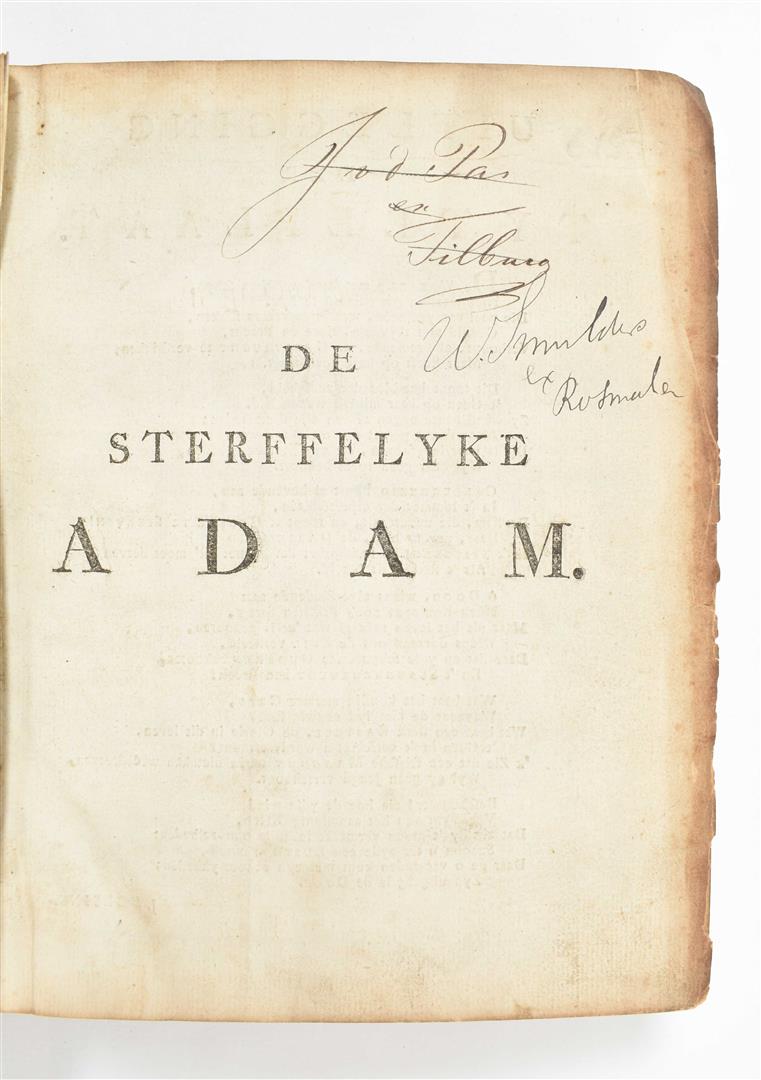 J v d Pas
ex
Tilburg
W. Smulders
ex
Rosmalen
DE
STERFFELYKE
ADAM.